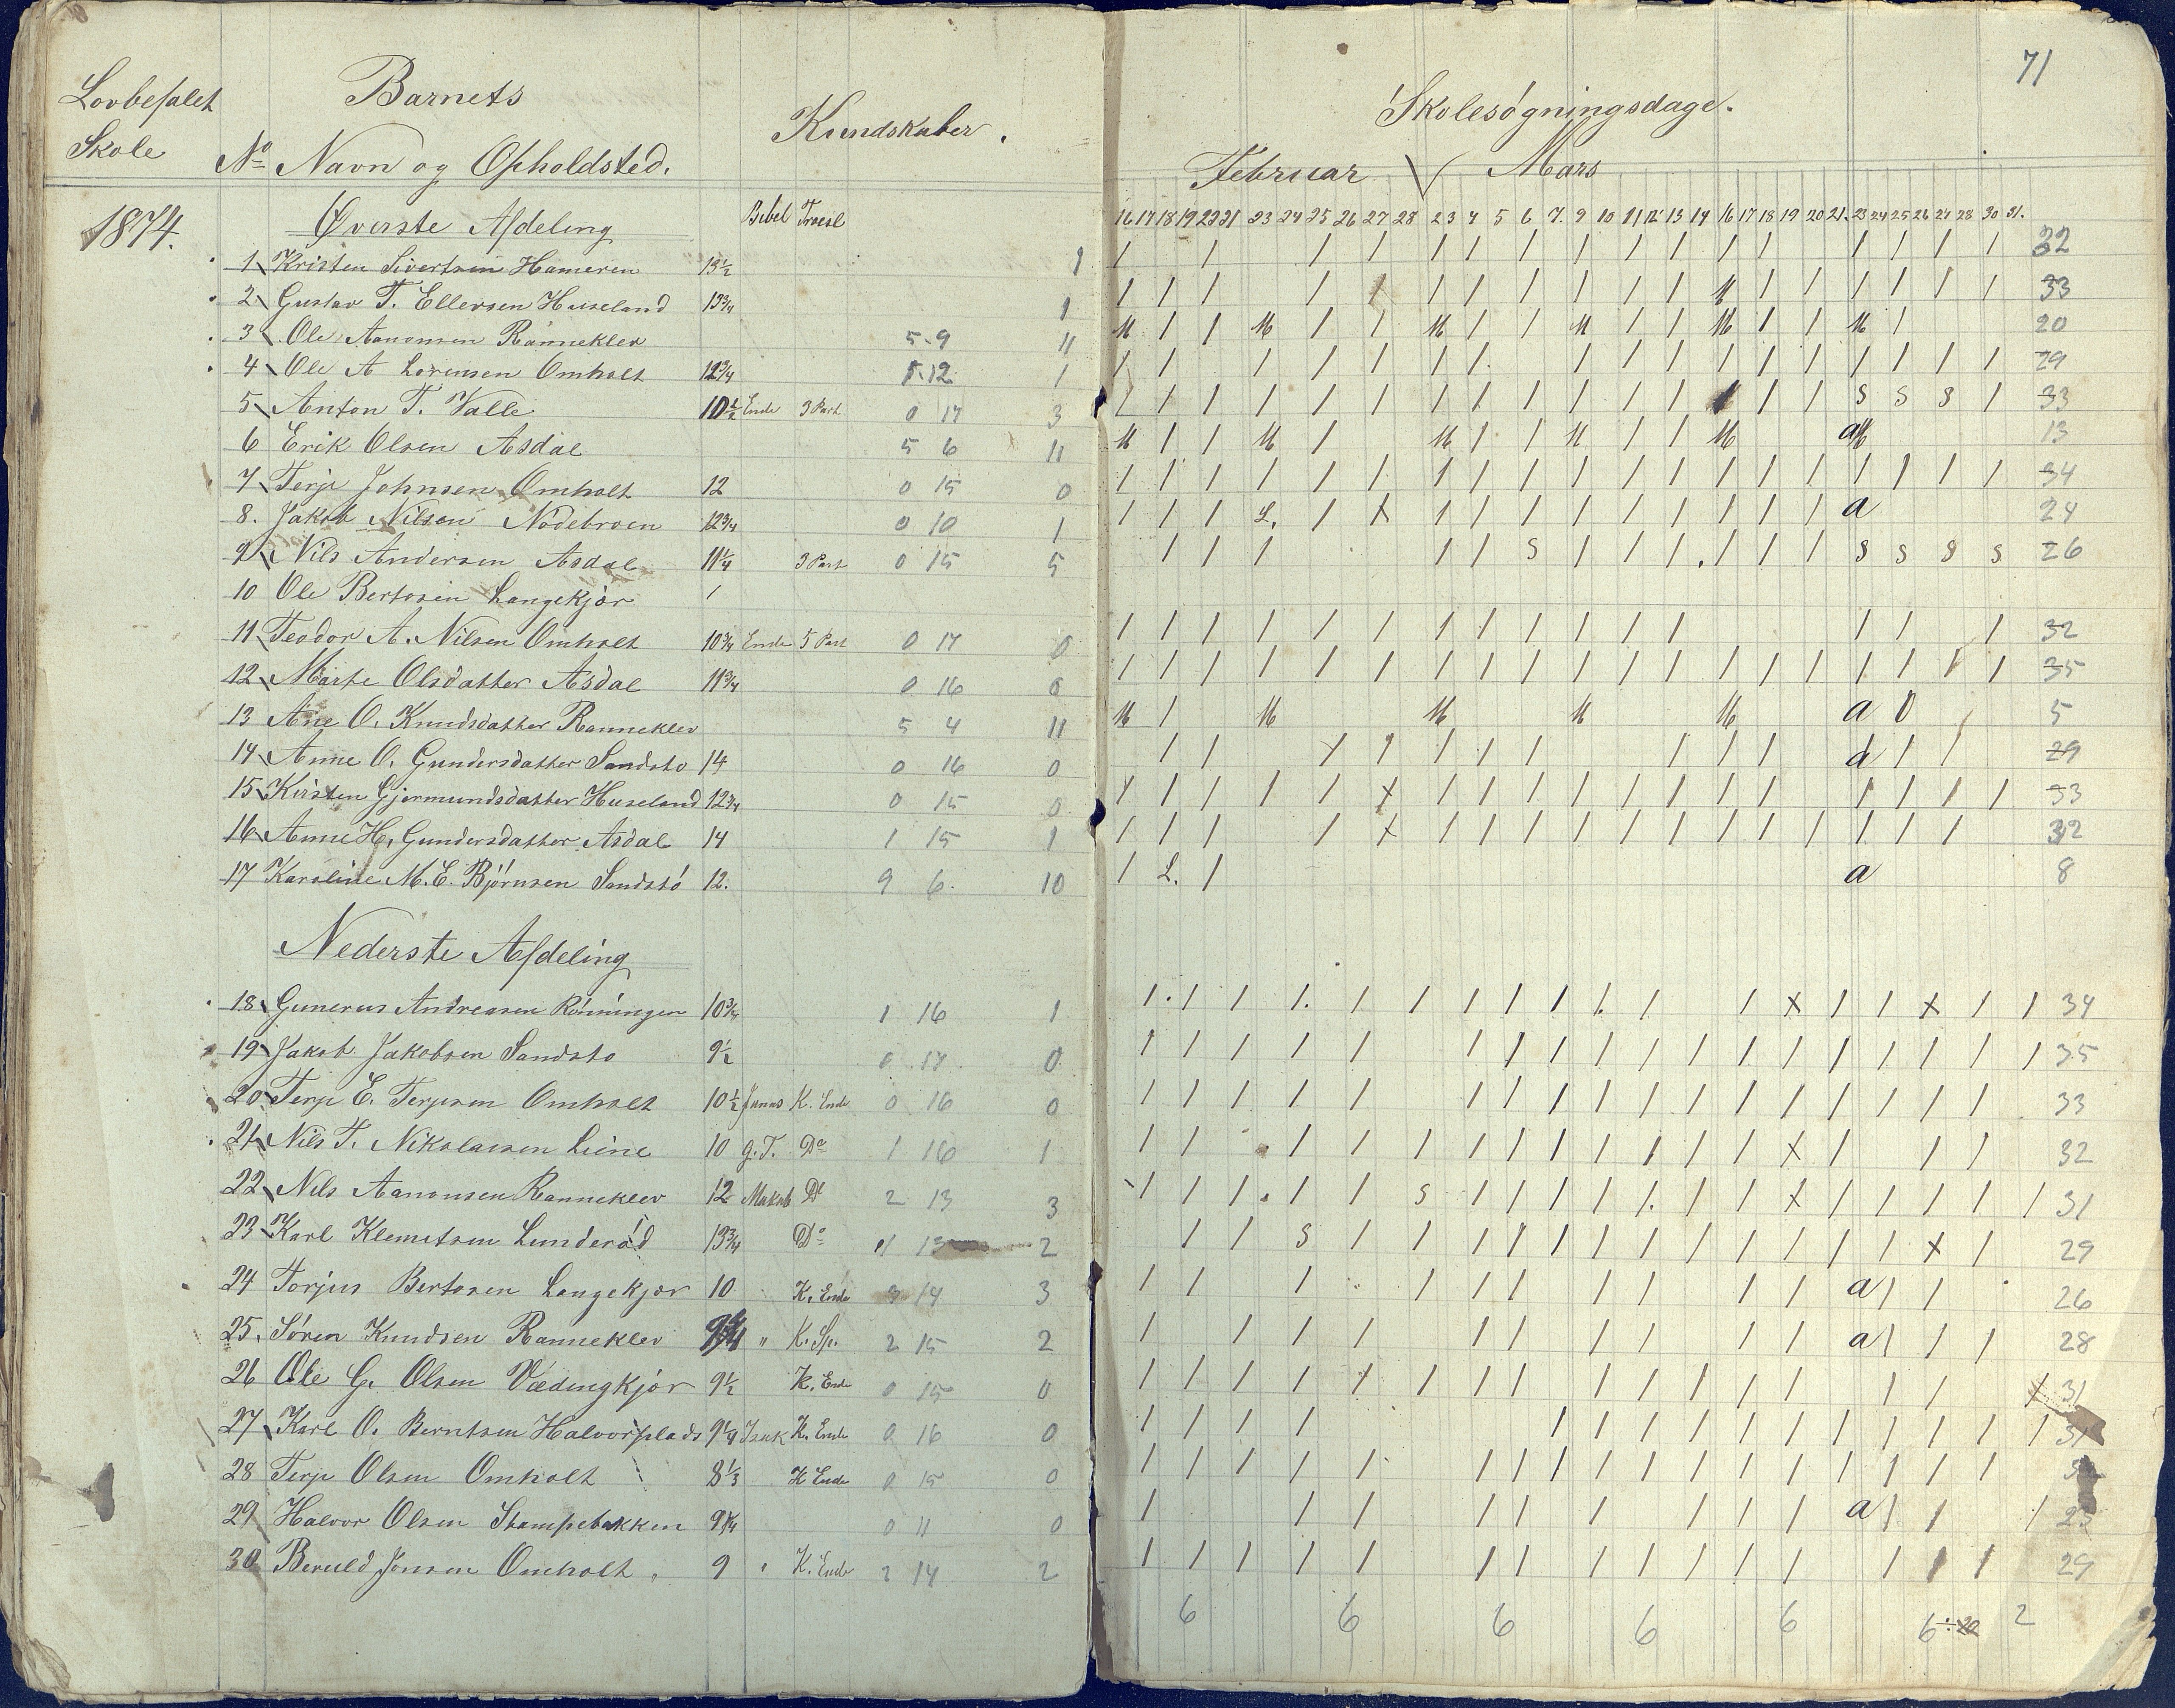 71
Lovbefalet Skole
Barnets
No Navn og Opholdsted.
Kundskaber.
Skolesøgningsdage.
Februar Mars
1874.
Øverste Afdeling Bibel Troesl
16 17 18 19 20 21 23 24 25 26 27 28 2 3 4 5 6 7. 9 10 11 12 13 14 16 17 18 19 20 21. 23 24 25 26 27 28 30 31.
1 Kristen Sivertsen Hameren 13½ 1 32
2 Gustav T. Ellersen Huseland 13¾ 1 33
3 Ole Aanonsen Ranneklev 5.9 11 20
4 Ole A Lorensen Omholt 12¾ 5.12 1 29
5 Anton T. Valle 10½ Ende 3 Part 0 17 3 s s s 33
6 Erik Olsen Asdal 5 6 11 13
7 Terje Johnsen Omholt 12 0 15 0 34
8. Jakob Nilsen Nodebroen 12¾ 0 10 1 L. a 24
9 Nils Andersen Asdal 11¼ 3 Part 0 15 5 s s s s s 26
10 Ole Bertosen Langekjør
11 Teodor A. Nilsen Omholt 10¾ Ende 5 Part 0 17 0 32
12 Marte Olsdatter Asdal 11¾ 0 16 0 35
13 Ane O. Knudsdatter Ranneklev 5 4 11 a 0 5
14 Anne O. Gundersdatter Sandstø 14 0 16 0 a 29
15 Kirsten Gjermundsdatter Huseland 12¾ 0 15 0 x 33
16 Anne H. Gundersdatter Asdal 14 1 15 1 x 32
17 Karoline M. E. Bjørnsen Sandstø 12. 9 6. 10 L. a 8
Nederste Afdeling
18 Gunerus Andreasen Rønningen 10¾ 1 16 1 x x 34
19 Jakob Jakobsen Sandstø 9½ 0 17 0 35
20 Terje E. Terjesen Omholt 10½ K. Ende 0 16 0 33
21 Nils T. Nikolaisen Liene 10 g. T. Do 1 16 1 x 32
22 Nils Aanonsen Ranneklev 12 Do 2 13 3 s x 31
23 Karl Klemetsen Lunderød 13¾ Do 1 13 2 s x 29
24 Torjus Bertosen Langekjør 10 K. Ende 3 14 3 a 26
25. Søren Knudsen Ranneklev " K. Sp. 2 15 2 a 28
26 Ole G. Olsen Vædingkjør 9½ K. Ende 0 15 0 31
27 Karl O. Berntsen Halvorsplads 9¼ Isak K. Ende 0 16 0 31
28 Terje Olsen Omholt 8⅓ K Ende 0 15 0
29 Halvor Olsen Stampebakken 9¼ 0 11 0 a 23
30 Beruld Jonsen Omholt 9 K. Ende 2 14 2 29
6 6 6 6 6 6 2